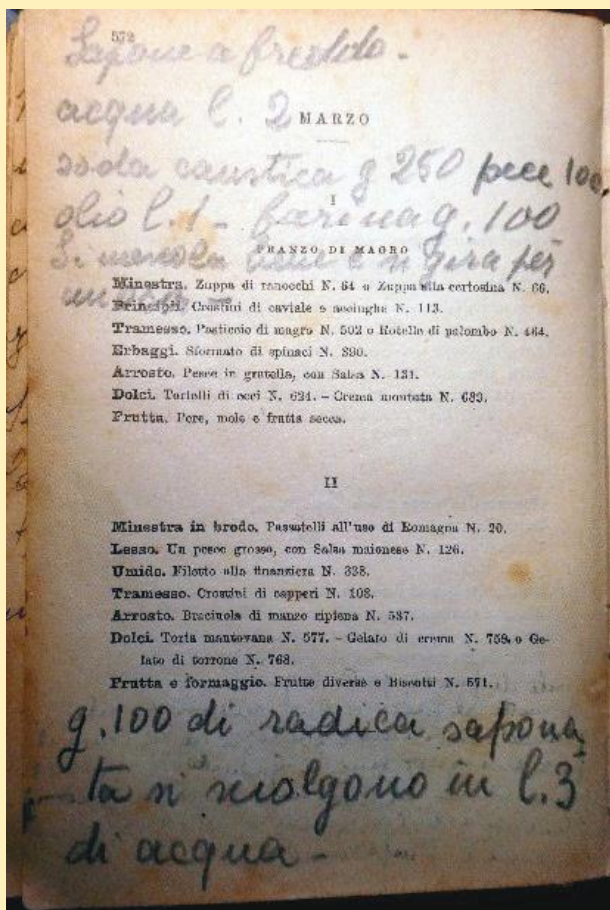 572
Sapone a freddo -
acqua l. 2
MARZO
soda caustica g 250 pece 100
I
olio l. 1 - farina g. 100
PRANZO DI MAGRO
Si mescola bene e si gira per
Minestra. Zuppa di ranocchi N. 64 o Zuppa alla certosina N. 66.
Principii. Crostini di caviale e acciughe N. 113.
Tramesso. Pasticcio di magro N. 502 o Rotelle di palombo N. 464.
Erbaggi. Sformato di spinaci N. 390.
Arrosto. Pesce in gratella, con Salsa N. 131.
Dolci. Tortelli di ceci N. 624. – Crema montata N. 689.
Frutta. Pere, mele e frutta secca.
II
Minestra in brodo. Passatelli all'uso di Romagna N. 20.
Lesso. Un pesce grosso, con Salsa maionese N. 126.
Umido. Filetto alla finanziera N. 338.
Tramesso. Crostini di capperi N. 108.
Arrosto. Braciuola di manzo ripiena N. 537.
Dolci. Torta mantovana N. 577. – Gelato di crema N. 759. o Ge-
lato di torrone N. 768.
Frutta e formaggio. Frutte diverse e Biscotti N. 571.
g. 100 di radica sapona
ta si sciolgono in l. 3
di acqua -